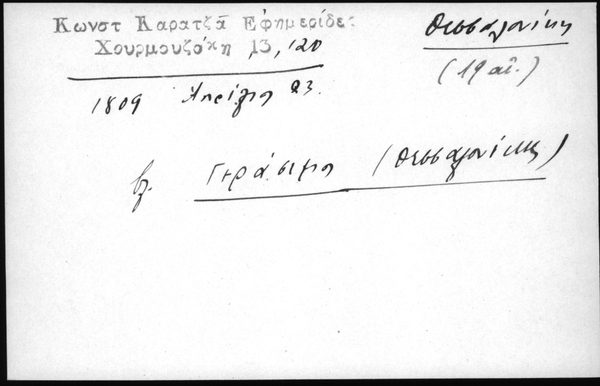 Κωνστ Καρατζᾶ Ἐφημερίδες
Χουρμουζάκη 13, 120
Θεσσαλονίκη
(19 αἰ.)
1809 Ἀπρίλιος 23.
βλ. Γεράσιμος (Θεσσαλονίκης)